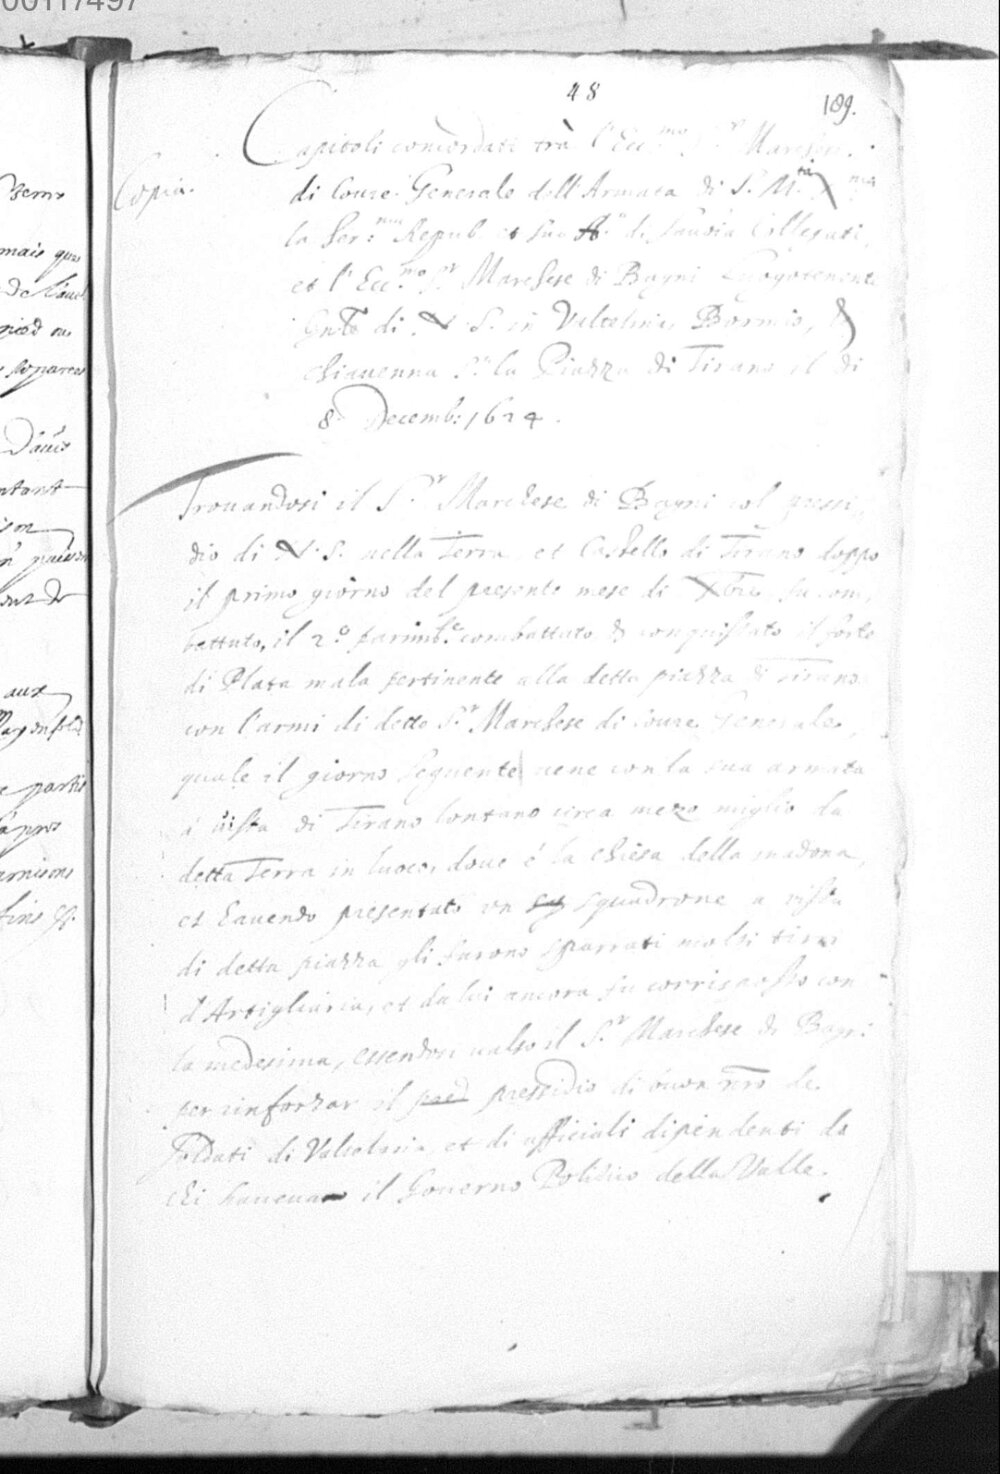 00117497
48
189.
Copia.
Capitoli concordati trà l'Ecc.mo S.r Marchese
di Coure Generale dell'Armata di S. M.tà X.ma
la Ser.ma Repub. et sua A. di Sauoia Collegati,
et l'Ecc.mo S.r Marchese di Bagni Luogotenente
Gn̄le di N. S. in Valtelina, Bormio, &
Chiauenna S.r la Piazza di Tirano il di
8. Decemb: 1624.
Trouandosi il S.r Marchese di Bagni col pressi,
dio di N. S. nella Terra, et Castello di Tirano doppo
il primo giorno del presente mese di Xbre fu com,
battuto, il 2.o parim.te combattuto & conquistato il forte
di Plata mala pertinente alla detta piazza di Tirano
con l'armi di detto S.r Marchese di Coure generale,
quale il giorno seguente uene con la sua armata
à uista di Tirano lontano circa mezo miglio da
detta Terra in luoco, doue é la chiesa della madona,
et hauendo presentato un squadrone a uista
di detta piazza gli furono sparrati molti tirri
d'Artigliaria, et da lui ancora fu corrisposto con
la medesima, essendosi ualso il S.r Marchese di Bagni
per rinforzar il pressidio di buon nr̄o de
Soldati di Valtelina et di officiali dipendenti da
chi haueuano il Gouerno Politico della Valle.
aux
partie